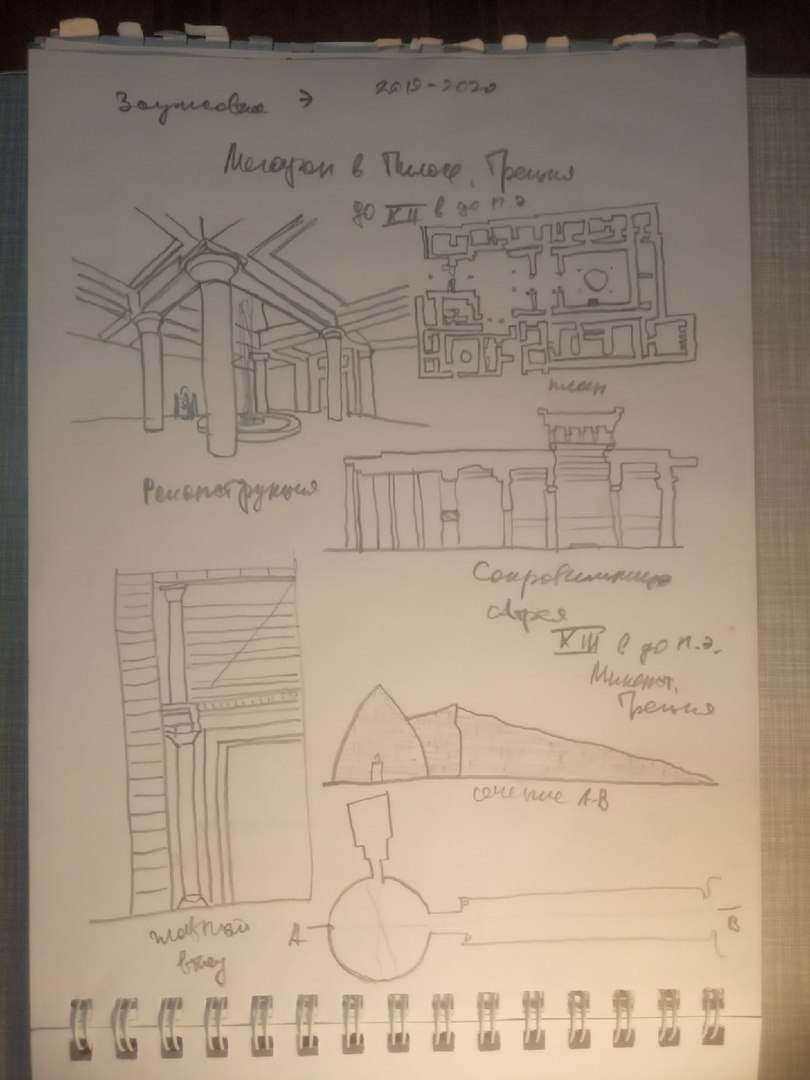 Э 2019-2020
Мегарон в Пилосе, Греция
до XII в до н.э.
план
Реконструкция
Сокровищница
Атрея
XIII в до н.э.
Микены,
Греция
сечение А-В
А
В
главный
вход